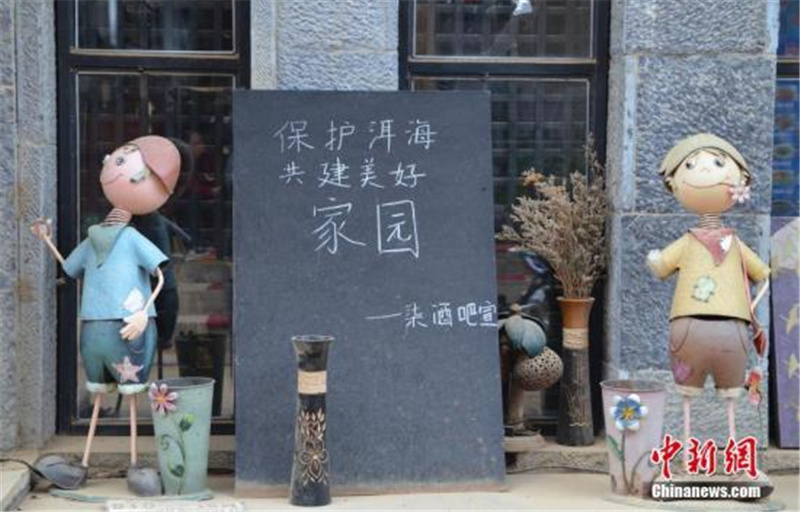 保护洱海
共建美好
家园
—柒酒吧宣
中新网
Chinanews.com